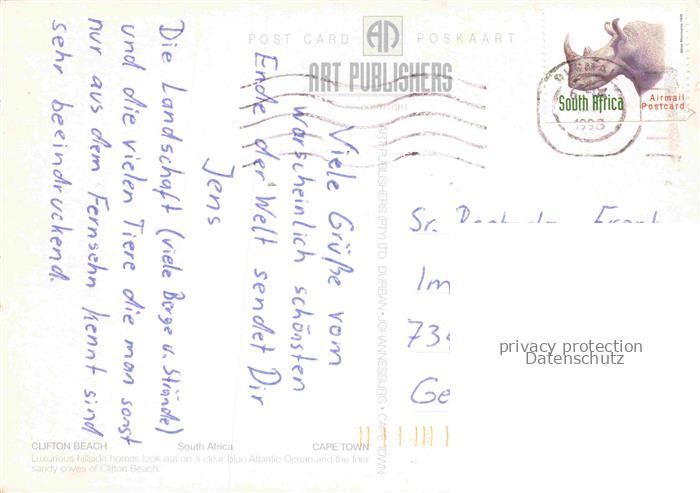 POST CARD
POSKAART
ART PUBLISHERS
COPYRIGHT
South Africa
Airmail
Postcard
Viele Grüße vom
warscheinlich schönsten
Ende der Welt sendet Dir
Jens
Die Landschaft (viele Berge u. Strände)
und die vielen Tiere die man sonst
nur aus dem Fernsehn kennt sind
sehr beeindruckend.
ART PUBLISHERS (PTY) LTD DURBAN • JOHANNESBURG • CAPE TOWN
Sr.
Im
73
Ge
privacy protection
Datenschutz
CLIFTON BEACH South Africa CAPE TOWN
Luxurious hillside homes look out on a clear blue Atlantic Ocean and the four
sandy coves of Clifton Beach.